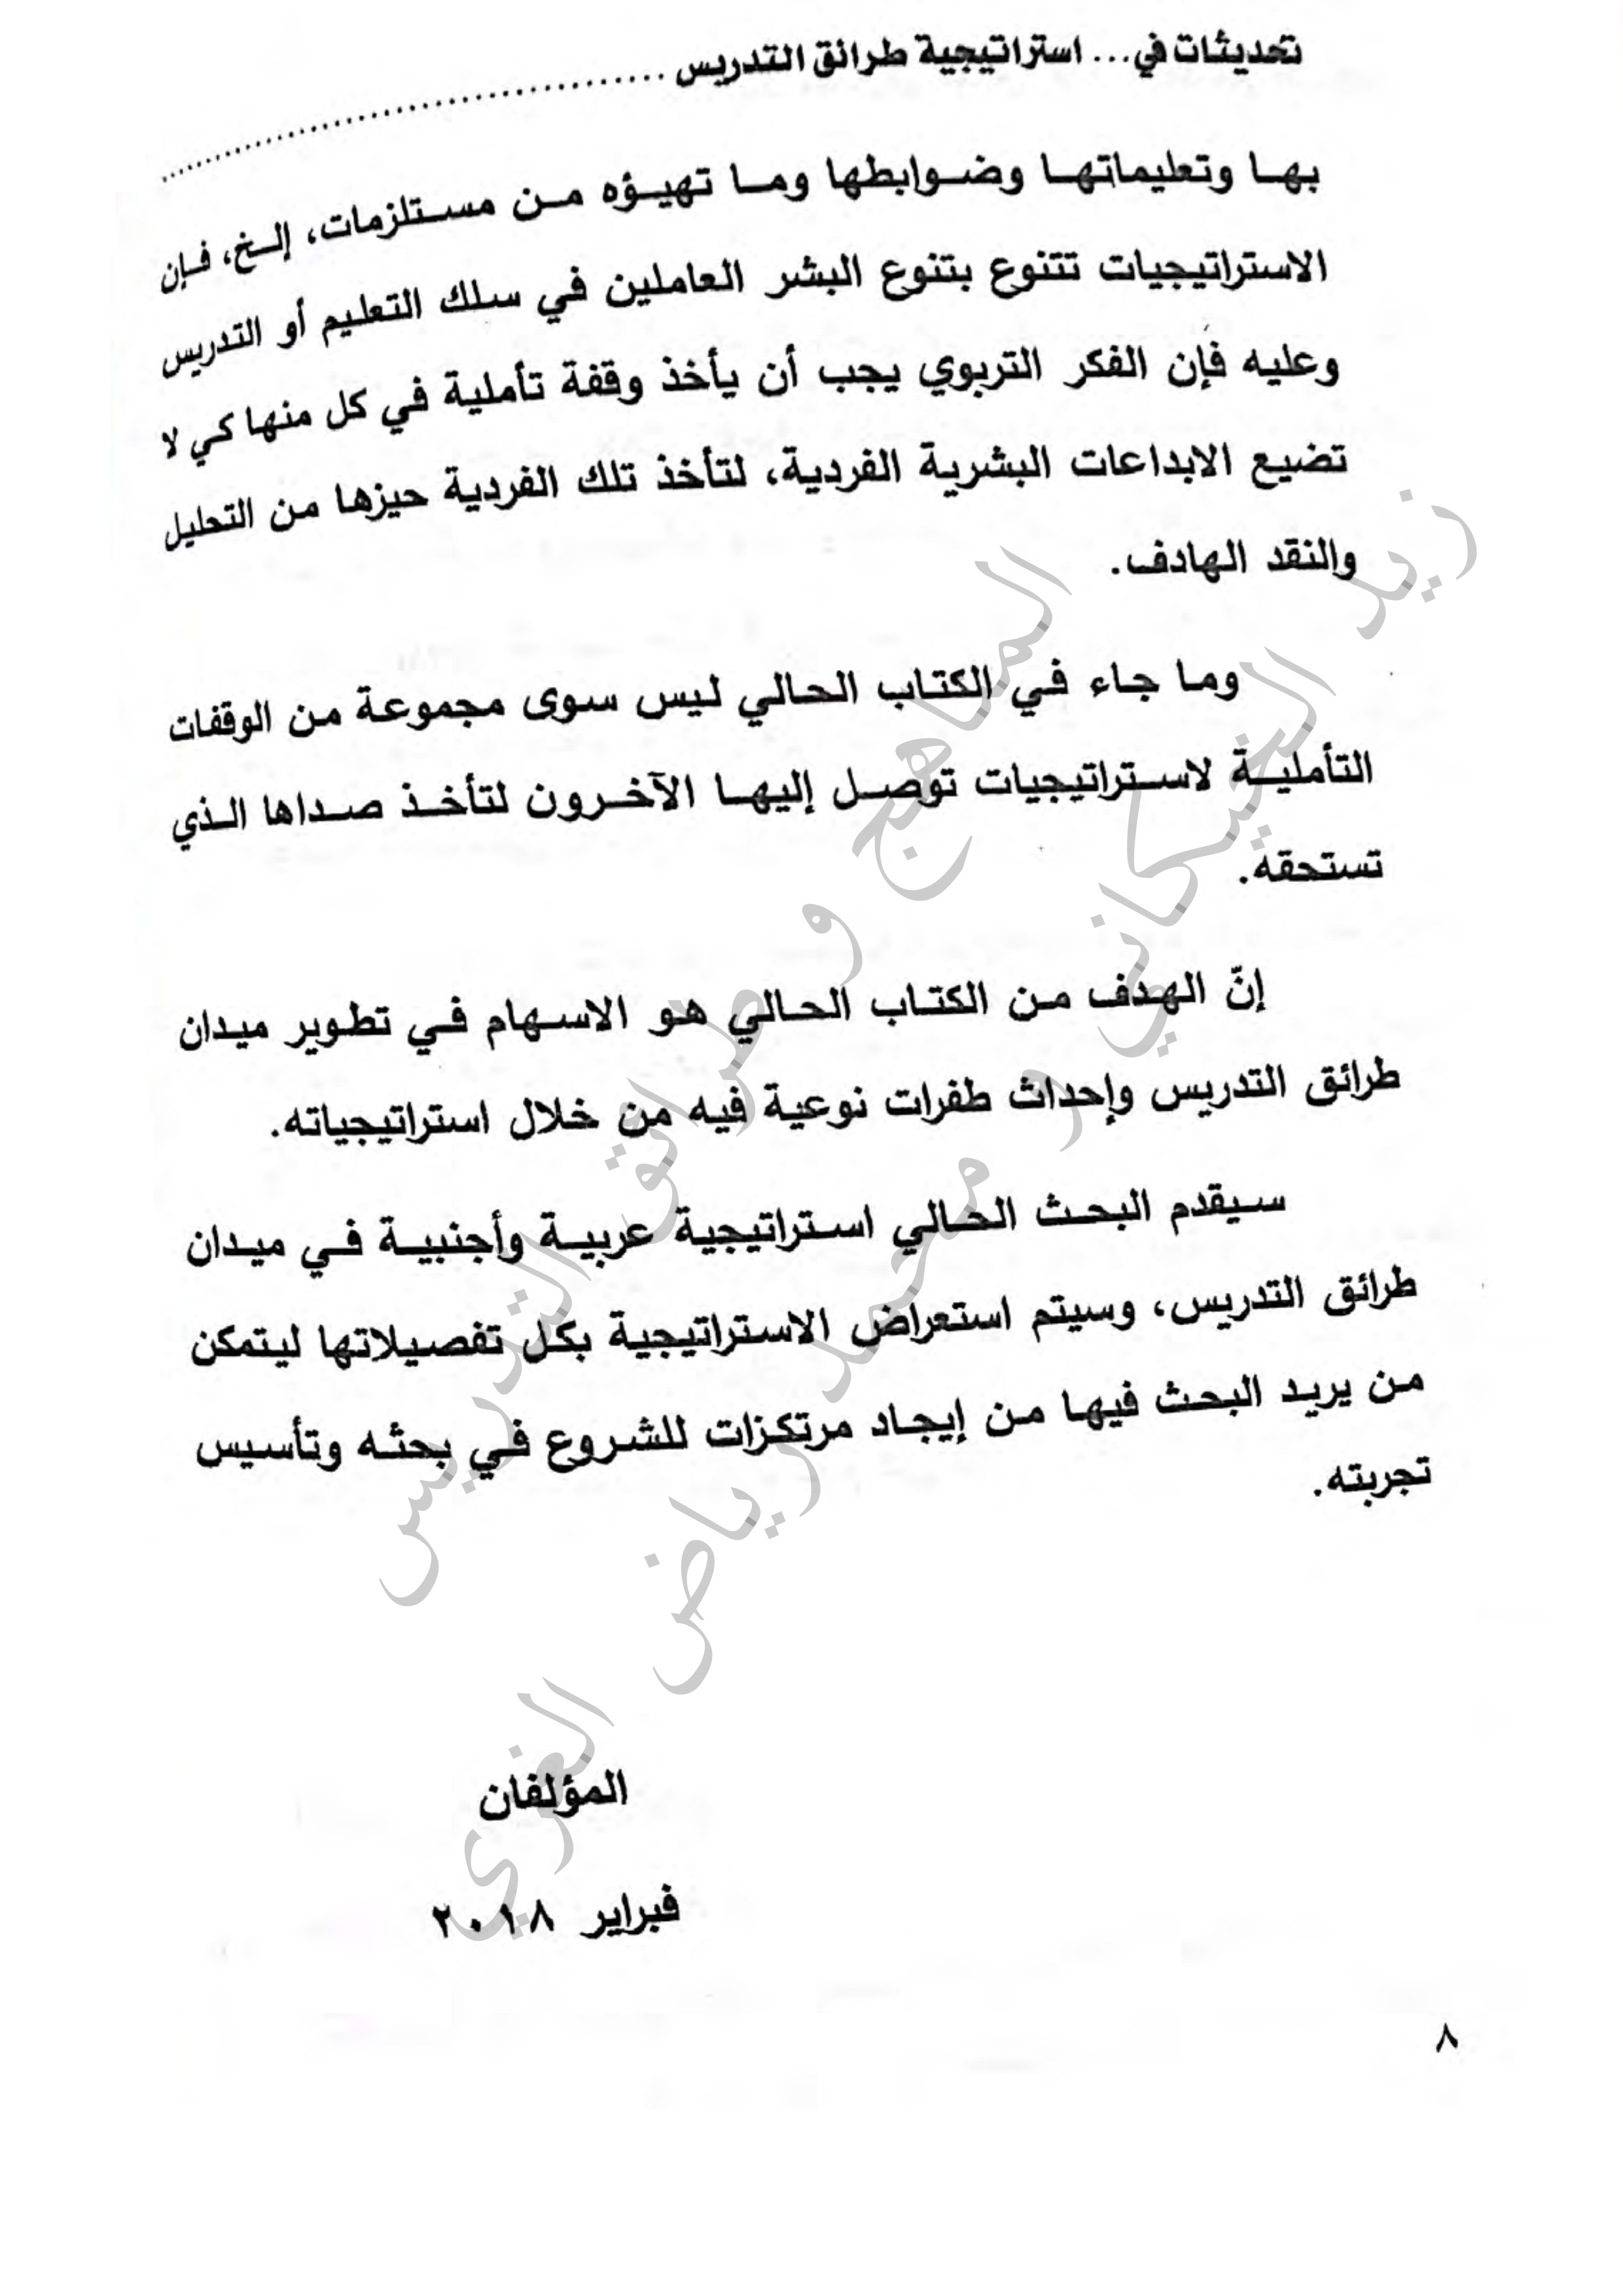 تحديثات في... استراتيجية طرائق التدريس ........................................
بها وتعليماتها وضوابطها وما تهيؤه من مستلزمات، إلخ، فإن
الاستراتيجيات تتنوع بتنوع البشر العاملين في سلك التعليم أو التدريس
وعليه فإن الفكر التربوي يجب أن يأخذ وقفة تأملية في كل منها كي لا
تضيع الابداعات البشرية الفردية، لتأخذ تلك الفردية حيزها من التحليل
والنقد الهادف.
وما جاء في الكتاب الحالي ليس سوى مجموعة من الوقفات
التأملية لاستراتيجيات توصل إليها الآخرون لتأخذ صداها الذي
تستحقه.
إنّ الهدف من الكتاب الحالي هو الاسهام في تطوير ميدان
طرائق التدريس وإحداث طفرات نوعية فيه من خلال استراتيجياته.
سيقدم البحث الحالي استراتيجية عربية وأجنبية في ميدان
طرائق التدريس، وسيتم استعراض الاستراتيجية بكل تفصيلاتها ليتمكن
من يريد البحث فيها من إيجاد مرتكزات للشروع في بحثه وتأسيس
تجربته.
المؤلفان
فبراير ٢٠١٨
٨
المناهج و طرائق التدريس
زيد الخيكاني و محمد رياض الغزي